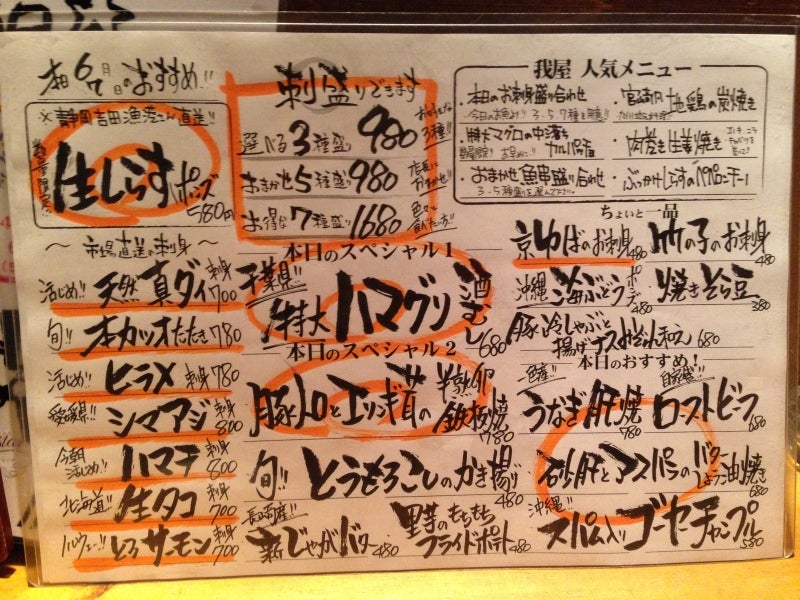 本日のおすすめ!!
静岡吉田漁港さん直送!!
数量限定!!
生しらすポンズ
580円
刺盛りできます
選べる3種盛り 980
おまかせ5種盛り 980
店長におまかせ!!
お得な7種盛り 1680
色々食べたい方!!
我屋 人気メニュー
・本日のお刺身盛り合わせ
3.5.7種を用意!!
・特大マグロの中落ち
数量限定!! お早めに!!
・おまかせ魚串盛り合わせ
3.5種盛りを選んで下さい
・宮崎産地鶏の炭焼き
・肉巻き生姜焼き
・ぶっかけしらすのペペロンチーノ
〜市場直送の刺身〜
活じめ!! 天然真ダイ 刺身 700
旬!! 本カツオたたき 780
活じめ!! ヒラメ 刺身 780
愛媛県!! シマアジ 刺身 800
今朝活じめ!! ハマチ 刺身 800
北海道!! 生タコ 刺身 700
ノルウェー!! とろサーモン 刺身 700
本日のスペシャル1
千葉県!!
特大ハマグリ酒むし 680
本日のスペシャル2
豚トロとエリンギ茸の半熟卵鉄板焼 780
旬!! とうもろこしのかき揚げ 480
長崎産!! 新じゃがバター 480
里芋のもちもちフライドポテト 480
ちょいと一品
京ゆばのお刺身 480
竹の子のお刺身 480
沖縄 海ぶどうポンズ 480
焼きそら豆 380
豚冷しゃぶと揚げナスのみぞれ和え 680
本日のおすすめ!
うなぎ肝焼 780
自家製!!
ローストビーフ 680
砂肝とアスパラのバターしょう油焼き 680
沖縄!!
スパム入りゴーヤチャンプル 580